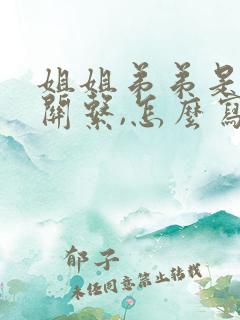 姐姐弟弟是
關繫,怎麼寫
郁子
未经同意禁止转载